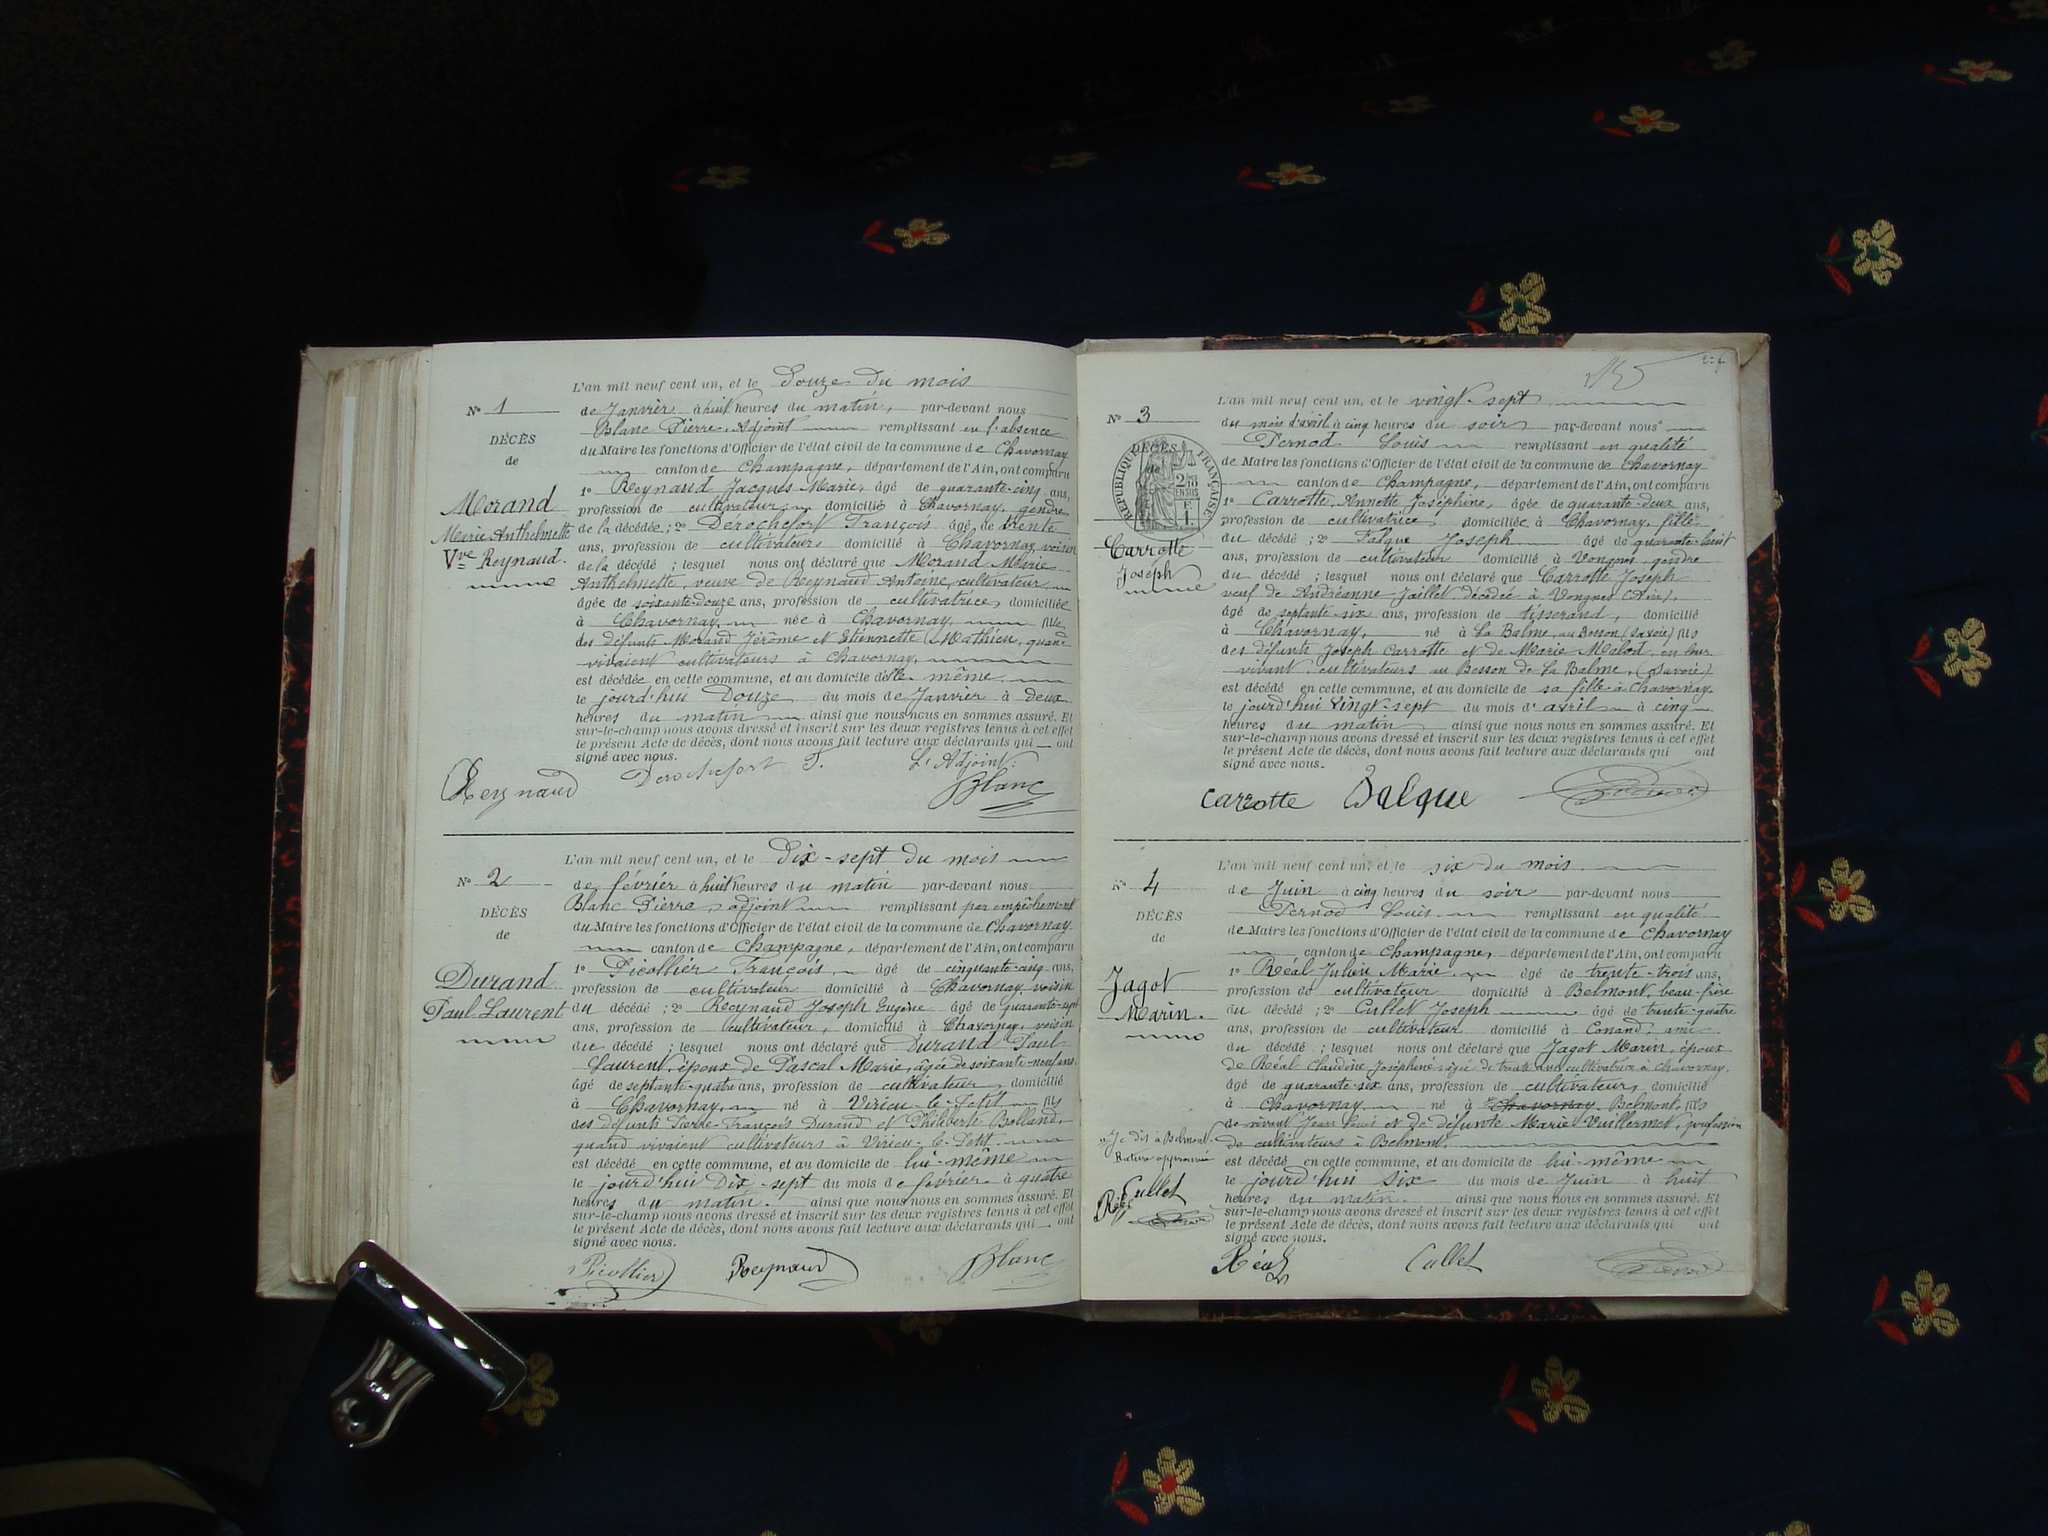 L'an mil neuf cent un, et le Douze du mois
N° 1
de Janvier à huit heures du matin, par-devant nous
Blanc Pierre, Adjoint remplissant en l'absence
DÉCÈS
du Maire les fonctions d'Officier de l'état civil de la commune de Chavornay
de
canton de Champagne, département de l'Ain, ont comparu
1° Reynaud Jacques Marie, âgé de quarante-cinq ans,
Morand
profession de cultivateur domicilié à Chavornay, gendre
Marie Anthelmette
de la décédée ; 2° Dérochefort François âgé de trente
ans, profession de cultivateur domicilié à Chavornay, voisin
Vve Reynaud.
de la décédée ; lesquel nous ont déclaré que Morand Marie
Anthelmette, veuve de Reynaud Antoine, cultivateur
âgée de soixante-douze ans, profession de cultivatrice, domiciliée
à Chavornay, née à Chavornay, fille
des défunts Morand Jérôme et Etiennette Mathieu, quand
vivaient cultivateurs à Chavornay,
est décédée en cette commune, et au domicile d'elle-même
le jourd'hui Douze du mois de Janvier à deux
heures du matin ainsi que nous nous en sommes assuré. Et
sur-le-champ nous avons dressé et inscrit sur les deux registres tenus à cet effet
le présent Acte de décès, dont nous avons fait lecture aux déclarants qui ont
signé avec nous.
Reynaud Derochefort F. L'Adjoint:
Blanc
L'an mil neuf cent un, et le Dix-sept du mois
N° 2
de février à huit heures du matin par-devant nous
Blanc Pierre, adjoint remplissant par empêchement
DÉCÈS
du Maire les fonctions d'Officier de l'état civil de la commune de Chavornay
de
canton de Champagne, département de l'Ain, ont comparu
1° Picollier François, âgé de cinquante-cinq ans,
Durand
profession de cultivateur domicilié à Chavornay, voisin
Paul Laurent
du décédé ; 2° Reynaud Joseph Eugène âgé de quarante-sept
ans, profession de cultivateur, domicilié à Chavornay, voisin
du décédé ; lesquel nous ont déclaré que Durand Paul
Laurent, époux de Pascal Marie, âgée de soixante-neuf ans
âgé de septante-quatre ans, profession de cultivateur, domicilié
à Chavornay, né à Virieu-le-Petit fils
des défunts Pierre-François Durand et Philiberte Bolland,
quand vivaient cultivateurs à Virieu-le-Petit
est décédé en cette commune, et au domicile de lui-même
le jourd'hui Dix-sept du mois de février à quatre
heures du matin. ainsi que nous nous en sommes assuré. Et
sur-le-champ nous avons dressé et inscrit sur les deux registres tenus à cet effet
le présent Acte de décès, dont nous avons fait lecture aux déclarants qui ont
signé avec nous.
Picollier Reynaud Blanc
L'an mil neuf cent un, et le vingt-sept
N° 3
du mois d'avril à cinq heures du soir par-devant nous
Pernod Louis remplissant en qualité
DÉCÈS
de
RÉPUBLIQUE FRANÇAISE
de Maire les fonctions d'Officier de l'état civil de la commune de Chavornay
canton de Champagne, département de l'Ain, ont comparu
1° Carrotte Annette Joséphine, âgée de quarante-deux ans,
profession de cultivatrice domiciliée à Chavornay, fille
Carrotte
du décédé ; 2° Falque Joseph âgé de quarante-huit
Joseph
ans, profession de cultivateur domicilié à Vongnes, gendre
du décédé ; lesquel nous ont déclaré que Carrotte Joseph
veuf de Andréanne Jaillet décédée à Vongnes (Ain),
âgé de septante-six ans, profession de tisserand, domicilié
à Chavornay, né à La Balme, au Bosson (Savoie) fils
des défunts Joseph Carrotte et de Marie Melod, en leur
vivant cultivateurs au Bosson de La Balme, (Savoie)
est décédé en cette commune, et au domicile de sa fille à Chavornay
le jourd'hui Vingt-sept du mois d'avril à cinq
heures du matin ainsi que nous nous en sommes assuré. Et
sur-le-champ nous avons dressé et inscrit sur les deux registres tenus à cet effet
le présent Acte de décès, dont nous avons fait lecture aux déclarants qui ont
signé avec nous.
Carrotte Falque
L'an mil neuf cent un, et le six du mois
N° 4
de Juin à cinq heures du soir par-devant nous
Pernod Louis remplissant en qualité
DÉCÈS
de Maire les fonctions d'Officier de l'état civil de la commune de Chavornay
de
canton de Champagne, département de l'Ain, ont comparu
1° Réal Julien Marie, âgé de trente-trois ans,
Jagot
profession de cultivateur domicilié à Belmont, beau-frère
Marin.
du décédé ; 2° Cullet Joseph âgé de trente-quatre
ans, profession de cultivateur domicilié à Conand, ami
du décédé ; lesquel nous ont déclaré que Jagot Marin, époux
de Réal Claudine Joséphine âgée de trente ans cultivatrice à Chavornay,
âgé de quarante-six ans, profession de cultivateur, domicilié
à Chavornay né à Chavornay Belmont, fils
de vivant Jean Louis et de défunte Marie Vuillermet, profession
de cultivateurs à Belmont.
Je dis à Belmont.
Rature approuvée
est décédé en cette commune, et au domicile de lui-même
le jourd'hui six du mois de Juin à huit
Cullet
Réal
heures du matin. ainsi que nous nous en sommes assuré. Et
sur-le-champ nous avons dressé et inscrit sur les deux registres tenus à cet effet
le présent Acte de décès, dont nous avons fait lecture aux déclarants qui ont
signé avec nous.
Réal Cullet